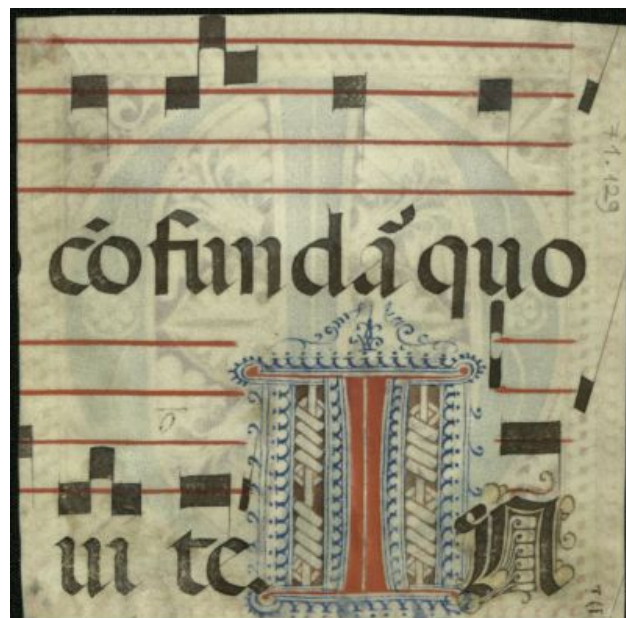 cōfundā quo
ui te. I N
71.129